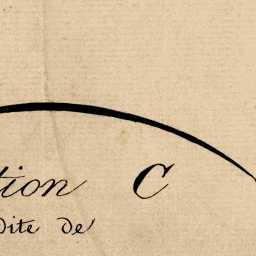 tion C
dite de